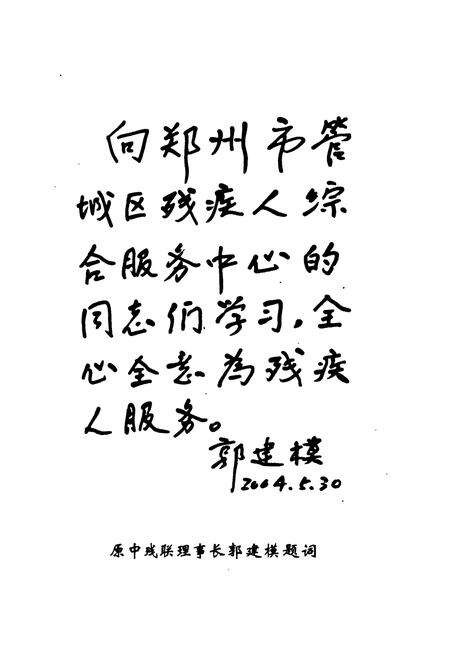 向郑州市管
城区残疾人综
合服务中心的
同志们学习，全
心全志为残疾
人服务。
郭建模
2004.5.30
原中残联理事长郭建模题词